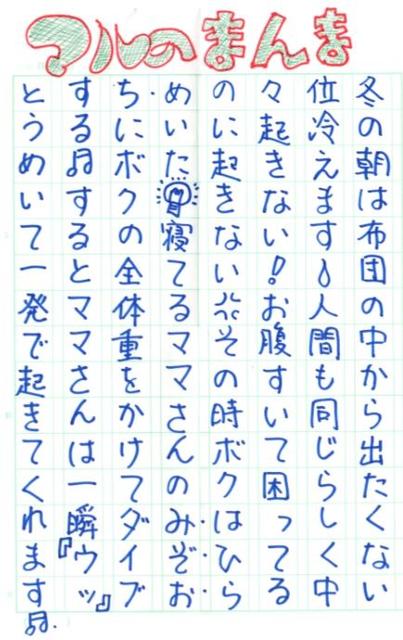 マルのまんま
冬の朝は布団の中から出たくない
位冷えます💧人間も同じらしく中
々起きない!お腹すいて困ってる
のに起きない💢その時ボクはひら
めいた💡寝てるママさんのみぞお
ちにボクの全体重をかけてダイブ
する♫するとママさんは一瞬『ウッ』
とうめいて一発で起きてくれます♫.